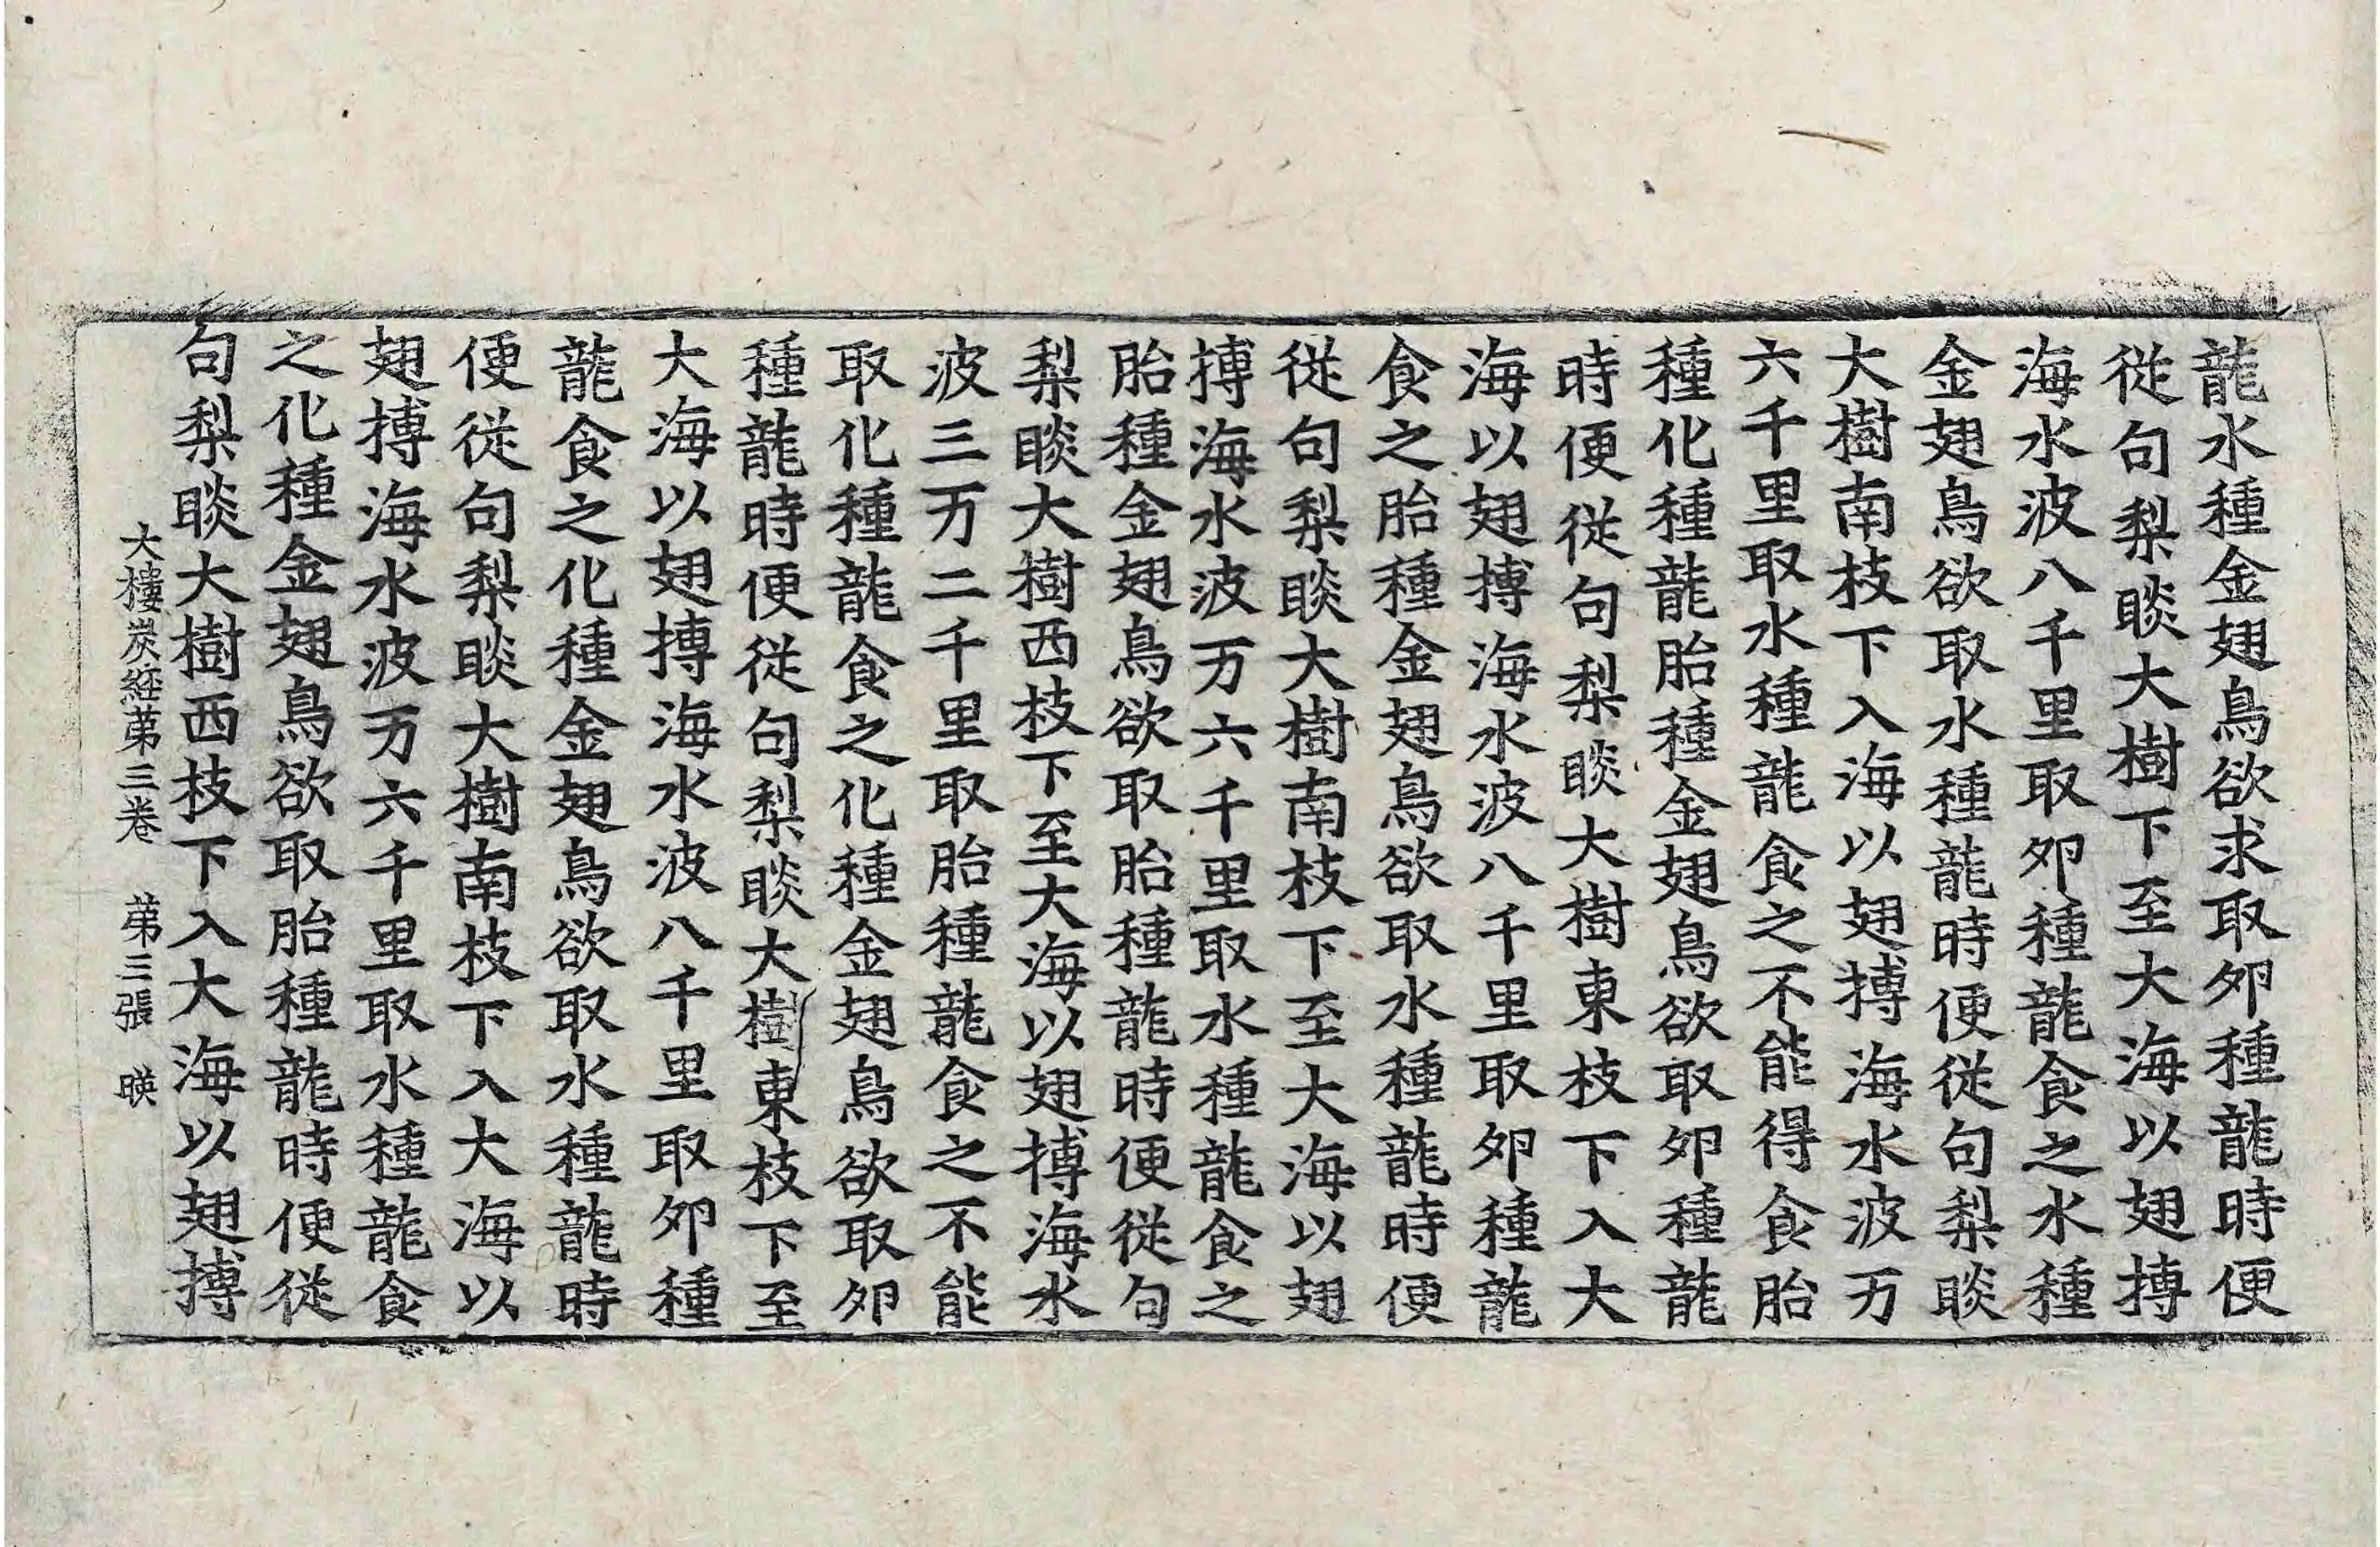 龍水種金翅鳥欲求取夘種龍時便
從句梨睒大樹下至大海以翅搏
海水波八千里取夘種龍食之水種
金翅鳥欲取水種龍時便從句梨睒
大樹南枝下入海以翅搏海水波万
六千里取水種龍食之不能得食胎
種化種龍胎種金翅鳥欲取夘種龍
時便從句梨睒大樹東枝下入大
海以翅搏海水波八千里取夘種龍
食之胎種金翅鳥欲取水種龍時便
從句梨睒大樹南枝下至大海以翅
搏海水波万六千里取水種龍食之
胎種金翅鳥欲取胎種龍時便從句
梨睒大樹西枝下至大海以翅搏海水
波三万二千里取胎種龍食之不能
取化種龍食之化種金翅鳥欲取夘
種龍時便從句梨睒大樹東枝下至
大海以翅搏海水波八千里取夘種
龍食之化種金翅鳥欲取水種龍時
便從句梨睒大樹南枝下入大海以
翅搏海水波万六千里取水種龍食
之化種金翅鳥欲取胎種龍時便從
句梨睒大樹西枝下入大海以翅搏
大樓炭經苐三卷 苐三張 暎